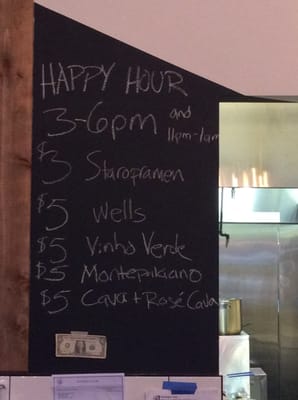 HAPPY HOUR
3-6pm and
11pm-1am
$3 Staropramen
$5 Wells
$5 Vinho Verde
$5 Montepulciano
$5 Cava + Rosé Cava